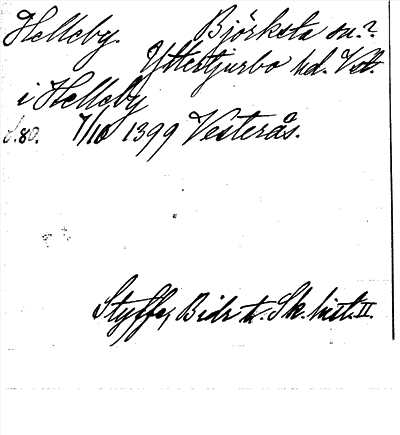 Helleby. Björksta sn.?
Yttertjurbo hd. Vstl.
i Helleby
S.80. 7/10 1399 Vesterås.
Styffe, Bidr. t. Sk. hist. II.